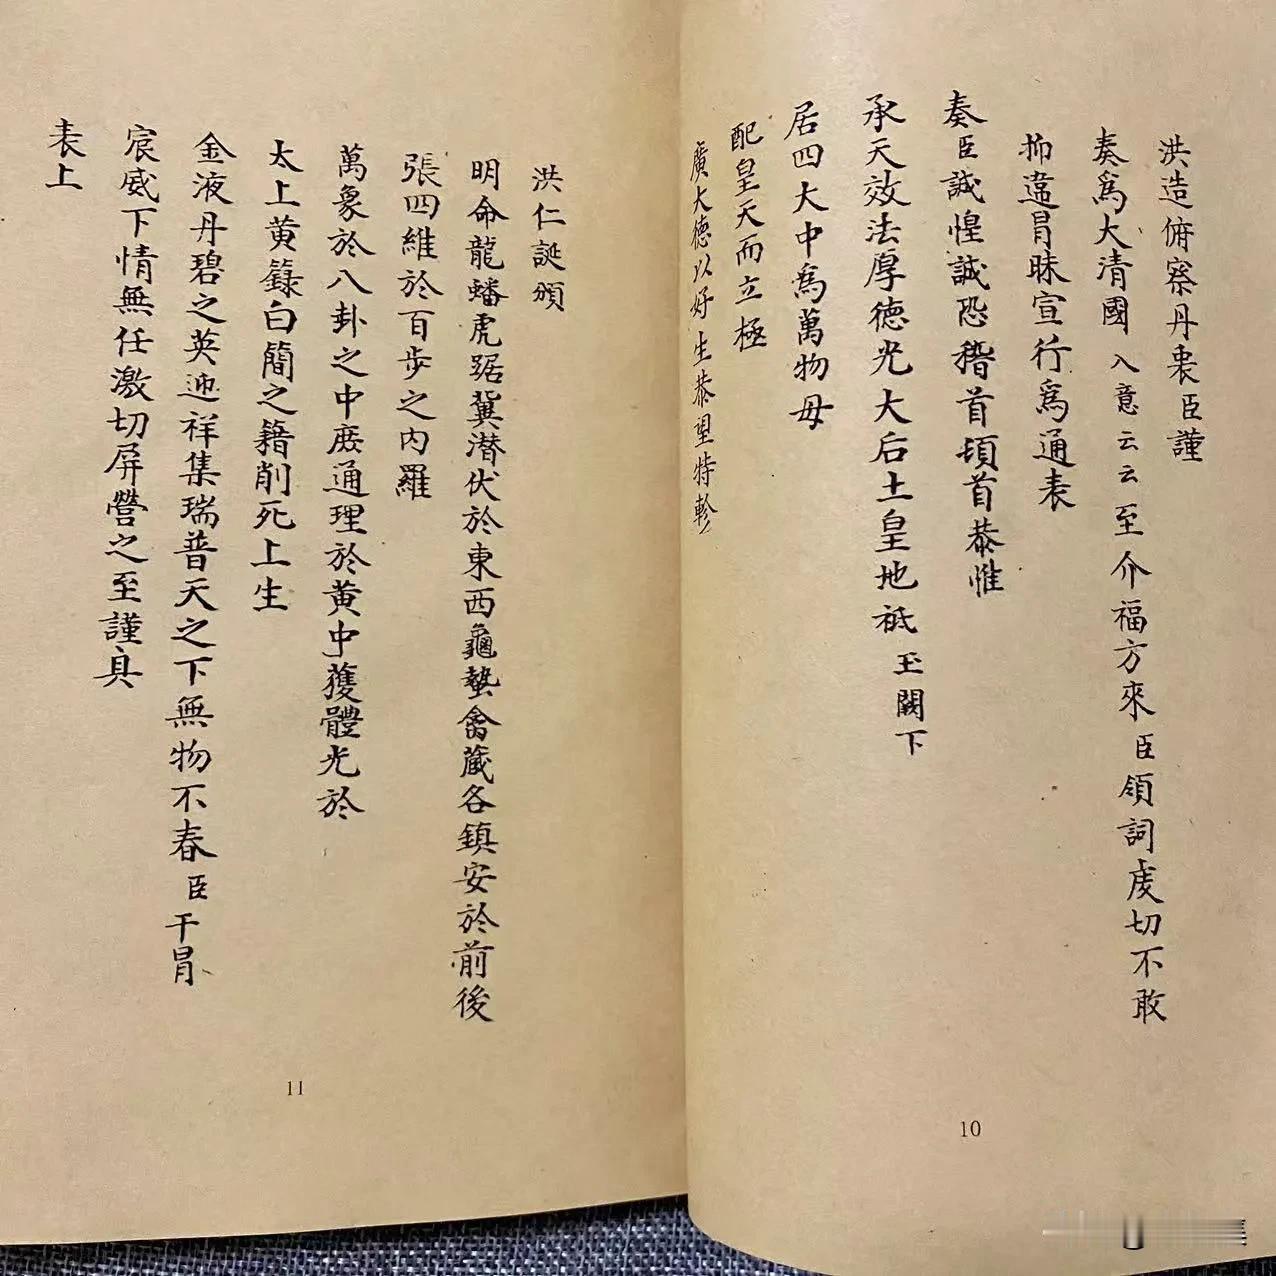 洪造俯察丹衷臣謹
奏爲大清國入意云云至介福方來臣領詞虔切不敢
抑違冒昧宣行爲通表
奏臣誠惶誠恐稽首頓首恭惟
承天效法厚德光大后土皇地祇玉闕下
居四大中爲萬物母
配皇天而立極
廣大德以好生恭望特軫
10
洪仁誕頒
明命龍蟠虎踞冀潜伏於東西龜蟄禽藏各鎮安於前後
張四維於百步之内羅
萬象於八卦之中庶通理於黄中獲體光於
太上黄籙白簡之籍削死上生
金液丹碧之英迎祥集瑞普天之下無物不春臣干冒
宸威下情無任激切屏營之至謹具
表上
11